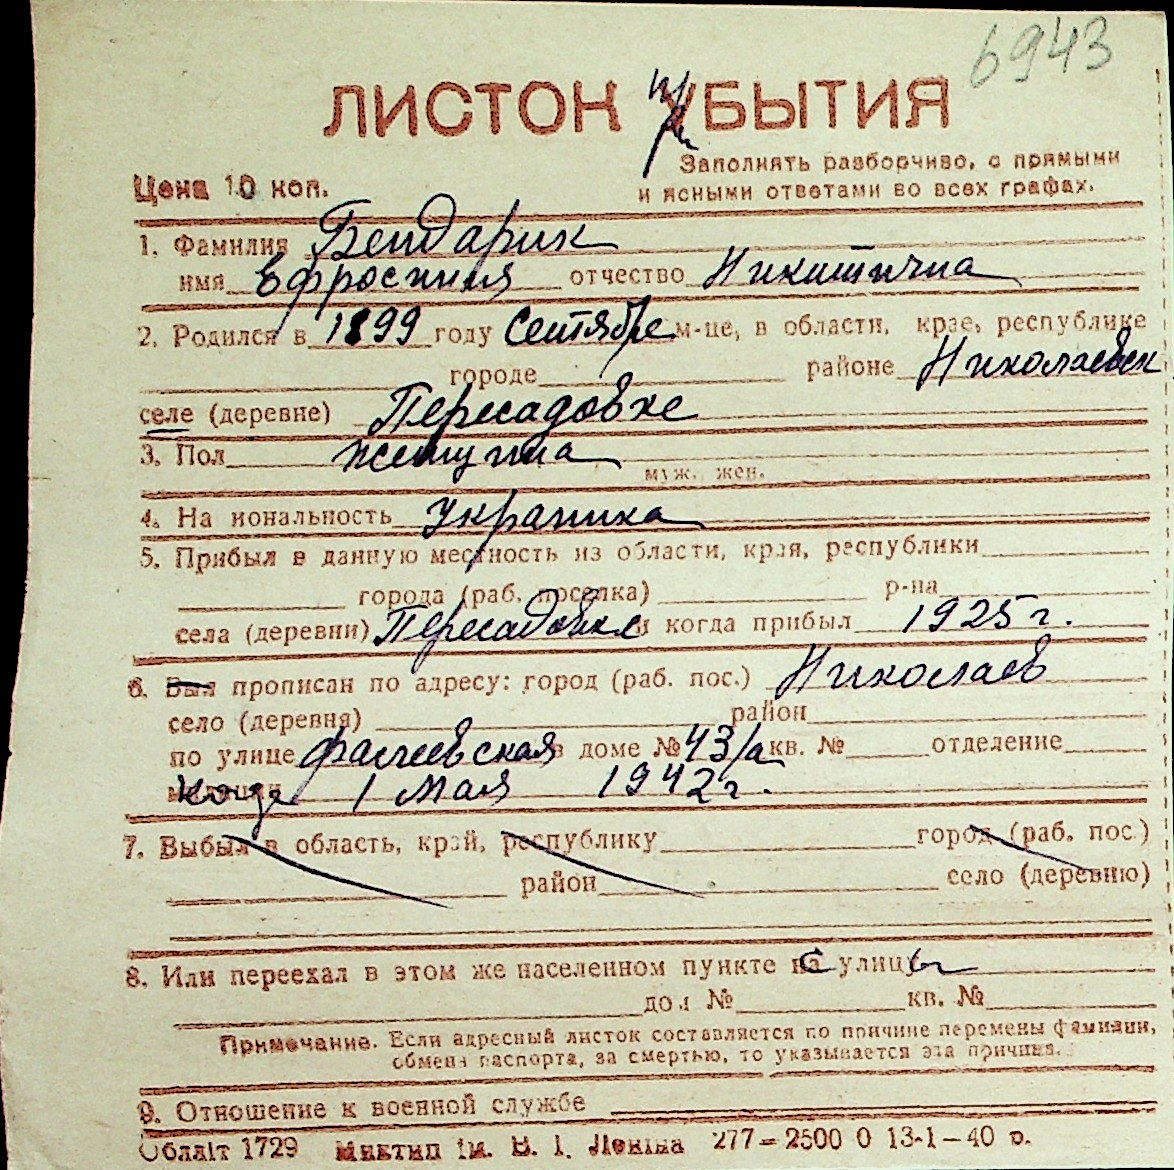 6943
ЛИСТОК УБЫТИЯ
Заполнять разборчиво, с прямыми
Цена 10 коп.
и ясными ответами во всех графах.
1. Фамилия Бендарик
имя Ефросиния отчество Никитична
2. Родился в 1899 году Сентябре м-це, в области, крае, республике
городе районе Николаевск
селе (деревне) Пересадовке
3. Пол женщина
муж. жен.
4. На иональность украинка
5. Прибыл в данную местность из области, края, республики
города (раб. поселка) р-на
села (деревни) Пересадовки и когда прибыл 1925 г.
6. Был прописан по адресу: город (раб. пос.) Николаев
село (деревня) район
по улице в доме № 43/а кв. № отделение
когда 1 Мая 1942 г.
7. Выбыл в область, край, республику город (раб. пос.)
район село (деревню)
8. Или переехал в этом же населенном пункте с улицы
дом № кв. №
Примечание. Если адресный листок составляется по причине перемены фамилии,
обмена паспорта, за смертью, то указывается эта причина.
9. Отношение к военной службе
Обліт 1729 Миктип ім. В. І. Леніна 277 — 2500 0 13-1-40 р.